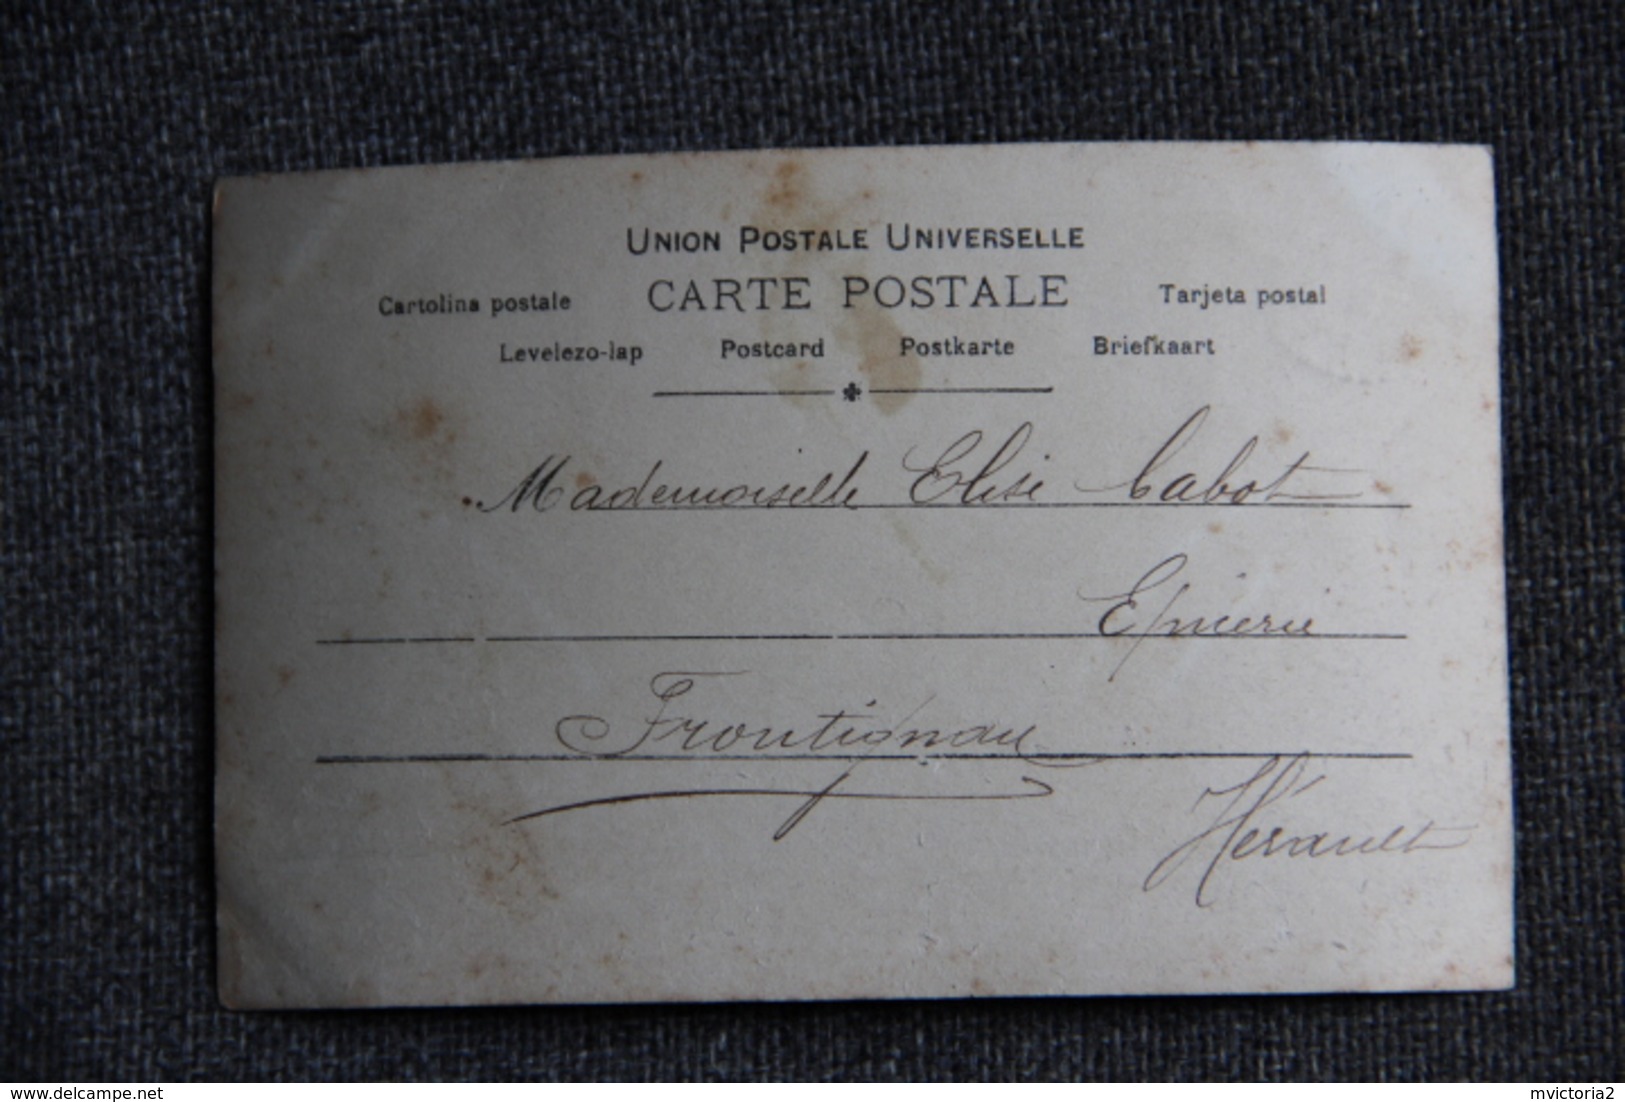 UNION POSTALE UNIVERSELLE
CARTE POSTALE
Cartolina postale Tarjeta postal
Levelezo-lap Postcard Postkarte Briefkaart
Mademoiselle Elise Cabot
Epicerie
Frontignan
Hérault
delcampe.net
mvictoria2